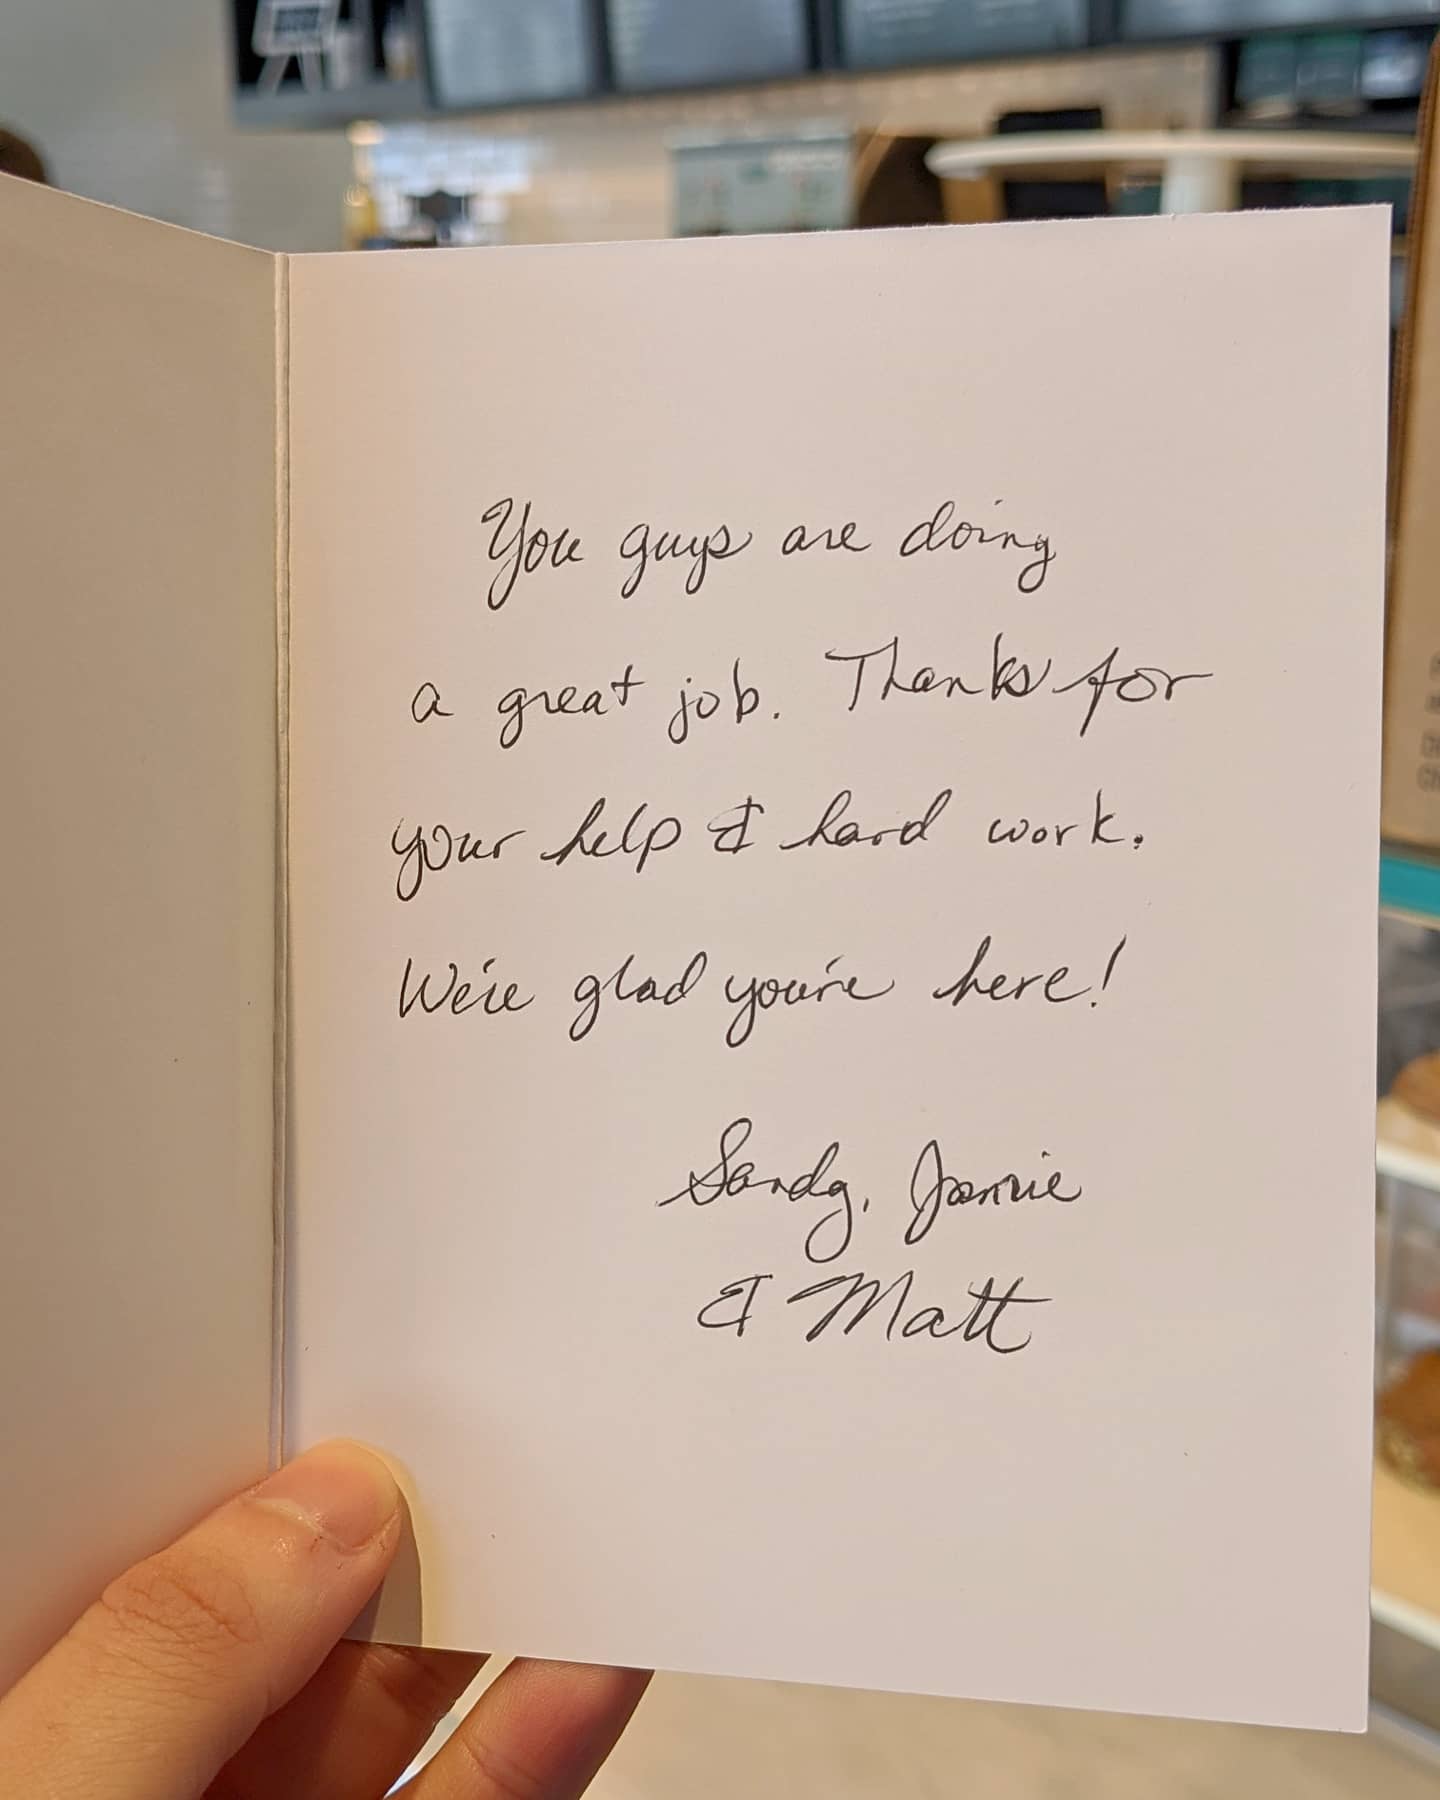 You guys are doing
a great job. Thanks for
your help & hard work.
We're glad you're here!
Sandy, Jamie
& Matt